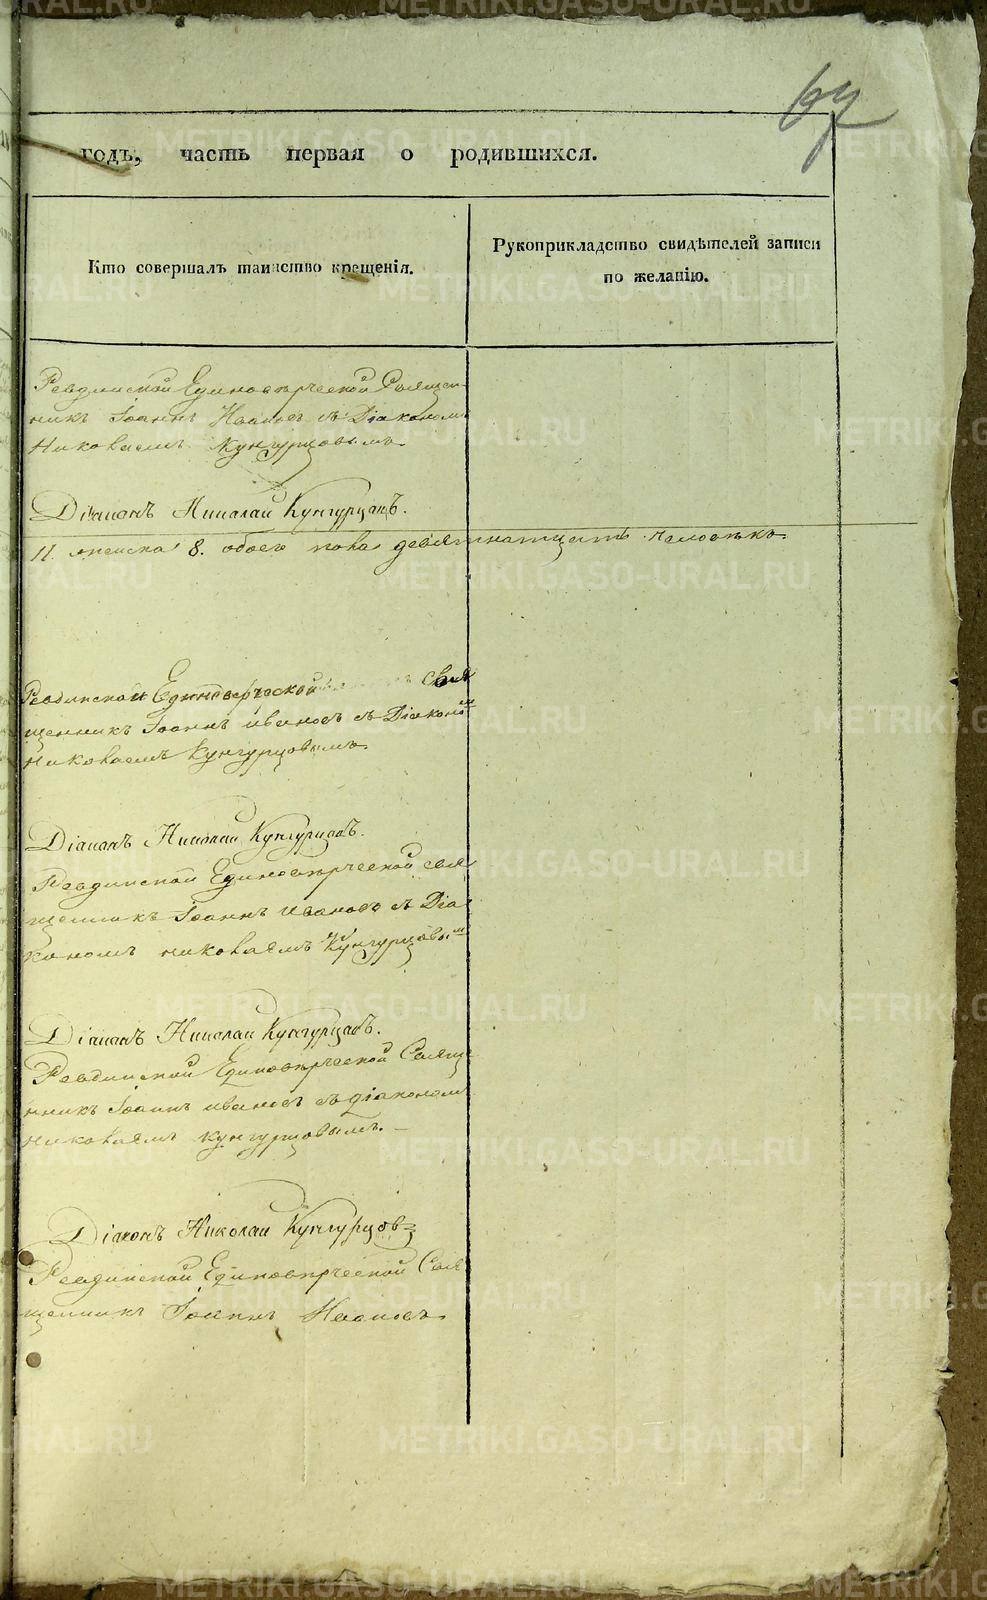 67
годъ, часть первая о родившихся.
Кто совершалъ таинство крещенія.
Рукоприкладство свидѣтелей записи
по желанію.
Ревдинской Единовѣрческой Священ
никъ Іоаннъ Ивановъ съ Діакономъ
Николаемъ Кунгурцовымъ
Діаконъ Николай Кунгурцовъ.
11. женска 8. обоего пола девятнатцеть человѣкъ
Ревдинской Единоверческой Свя
щенникъ Іоаннъ Ивановъ съ Діакономъ
Николаемъ Кунгурцовымъ
Діаконъ Николай Кунгурцовъ.
Ревдинской Единовѣрческой свя
щенникъ Іоаннъ Ивановъ съ Діа
кономъ Николаемъ Кунгурцовым
Діаконъ Николай Кунгурцовъ.
Ревдинской Единовѣрческой Свяще
нникъ Іоаннъ Ивановъ съ діакономъ
Николаемъ Кунгурцовымъ. —
Діаконъ Николай Кунгурцовъ
Ревдинской Единовѣрческой Свя
щенникъ Іоаннъ Ивановъ
METRIKI.GASO-URAL.RU